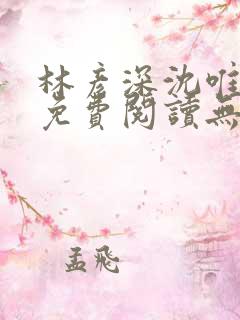 林彦深沈唯
免費閱讀無
孟飛